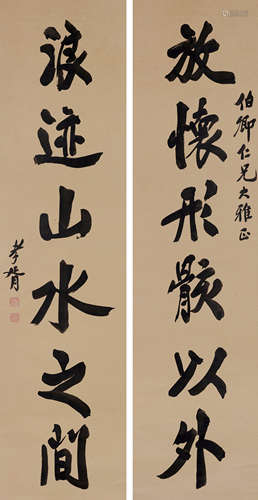 放懷形骸以外
伯卿仁兄大雅正
浪迹山水之間
孝胥